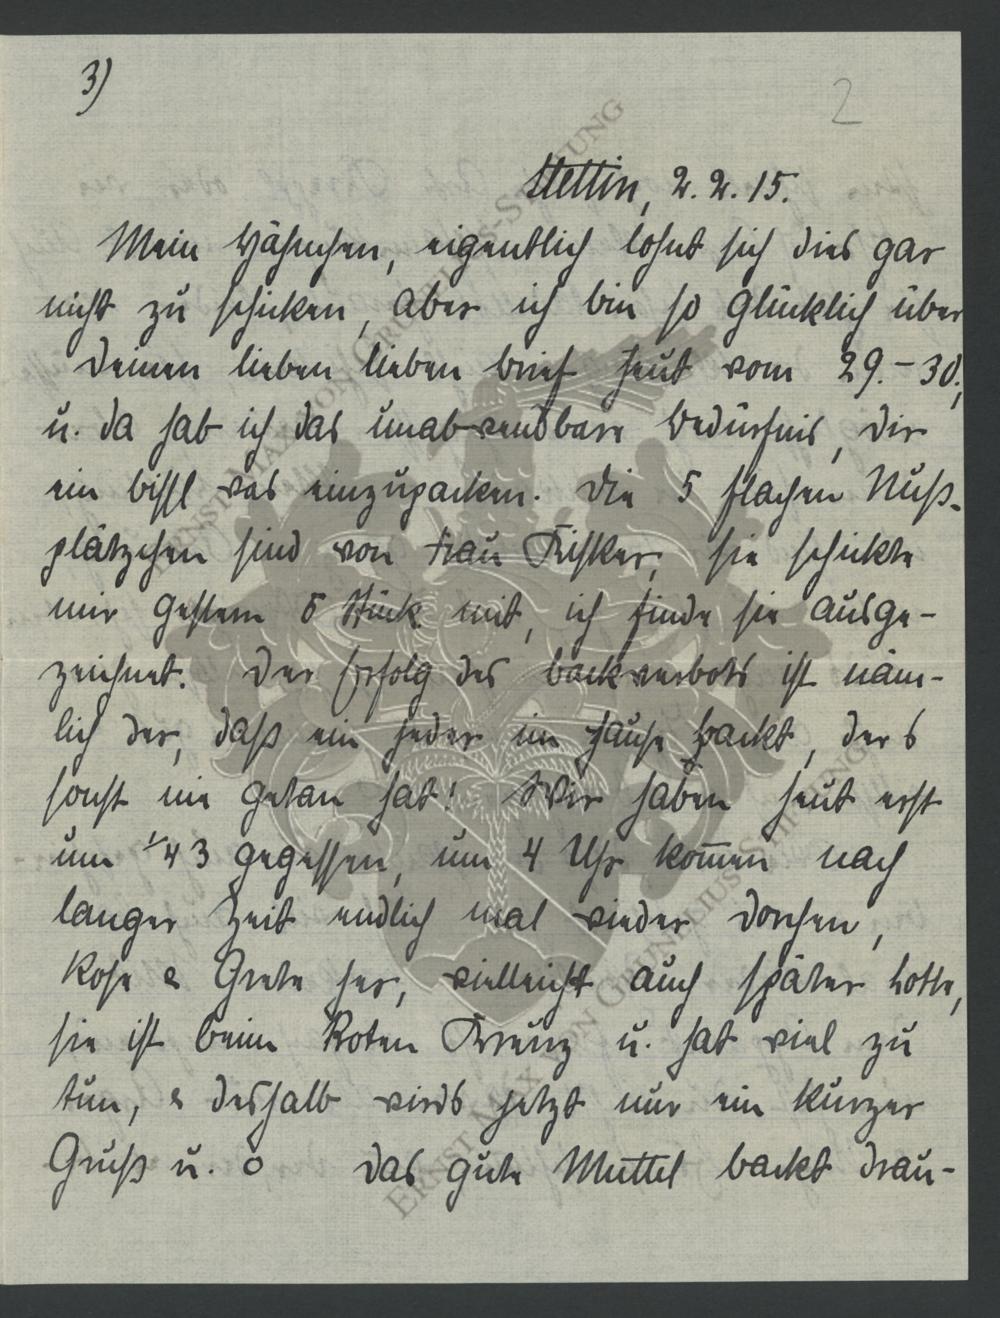 3)
2
Stettin, 2. 2. 15.
Mein Hähnchen, eigentlich lohnt sich dies gar
nicht zu schicken, aber ich bin so glücklich über
Deinen lieben lieben Brief heut vom 29.–30.,
u. da hab ich das unabwendbare Bedürfnis, Dir
ein bissl was einzupacken. Die 5 flachen Nuß-
plätzchen sind von Frau, sie schickte
mir gestern 6 Stück mit, ich finde sie ausge-
zeichnet. Der Erfolg des Backverbots ist näm-
lich der, daß ein jeder im Hause backt, der s
sonst nie getan hat! Wir haben heut erst
um 1/4 3 gegessen, um 4 Uhr kom̅en nach
langer Zeit endlich mal wieder Dorchen,
Rose & Grete her, vielleicht auch später Lotte,
sie ist beim Roten Kreuz u. hat viel zu
tun, & deshalb wirds jetzt nur ein kurzer
Gruß u. o Das gute Muttel backt drau-
ERNST MAX VON GRUNELIUS-STIFTUNG
ERNST MAX VON GRUNELIUS-STIFTUNG